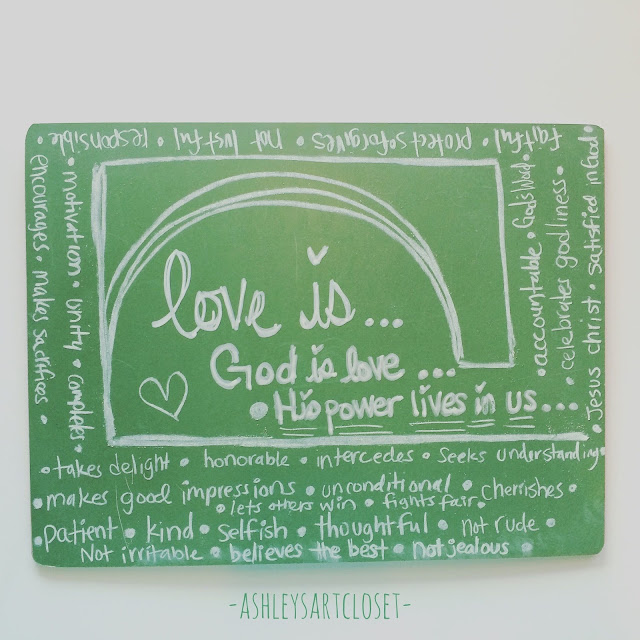 faithful • protects • forgives • not lustful • responsible •
encourages • makes sacrifices •
• motivation • unity • completes
love is...
God is love ...
• His power lives in us ...
• accountable • God's Word •
• celebrates godliness •
• Jesus christ • satisfied in God •
• takes delight • honorable • intercedes • seeks understanding •
• makes good impressions • unconditional • cherishes •
• lets others win • fights fair •
• patient • kind • selfish • thoughtful • not rude •
Not irritable • believes the best • not jealous •
-ASHLEYSARTCLOSET-